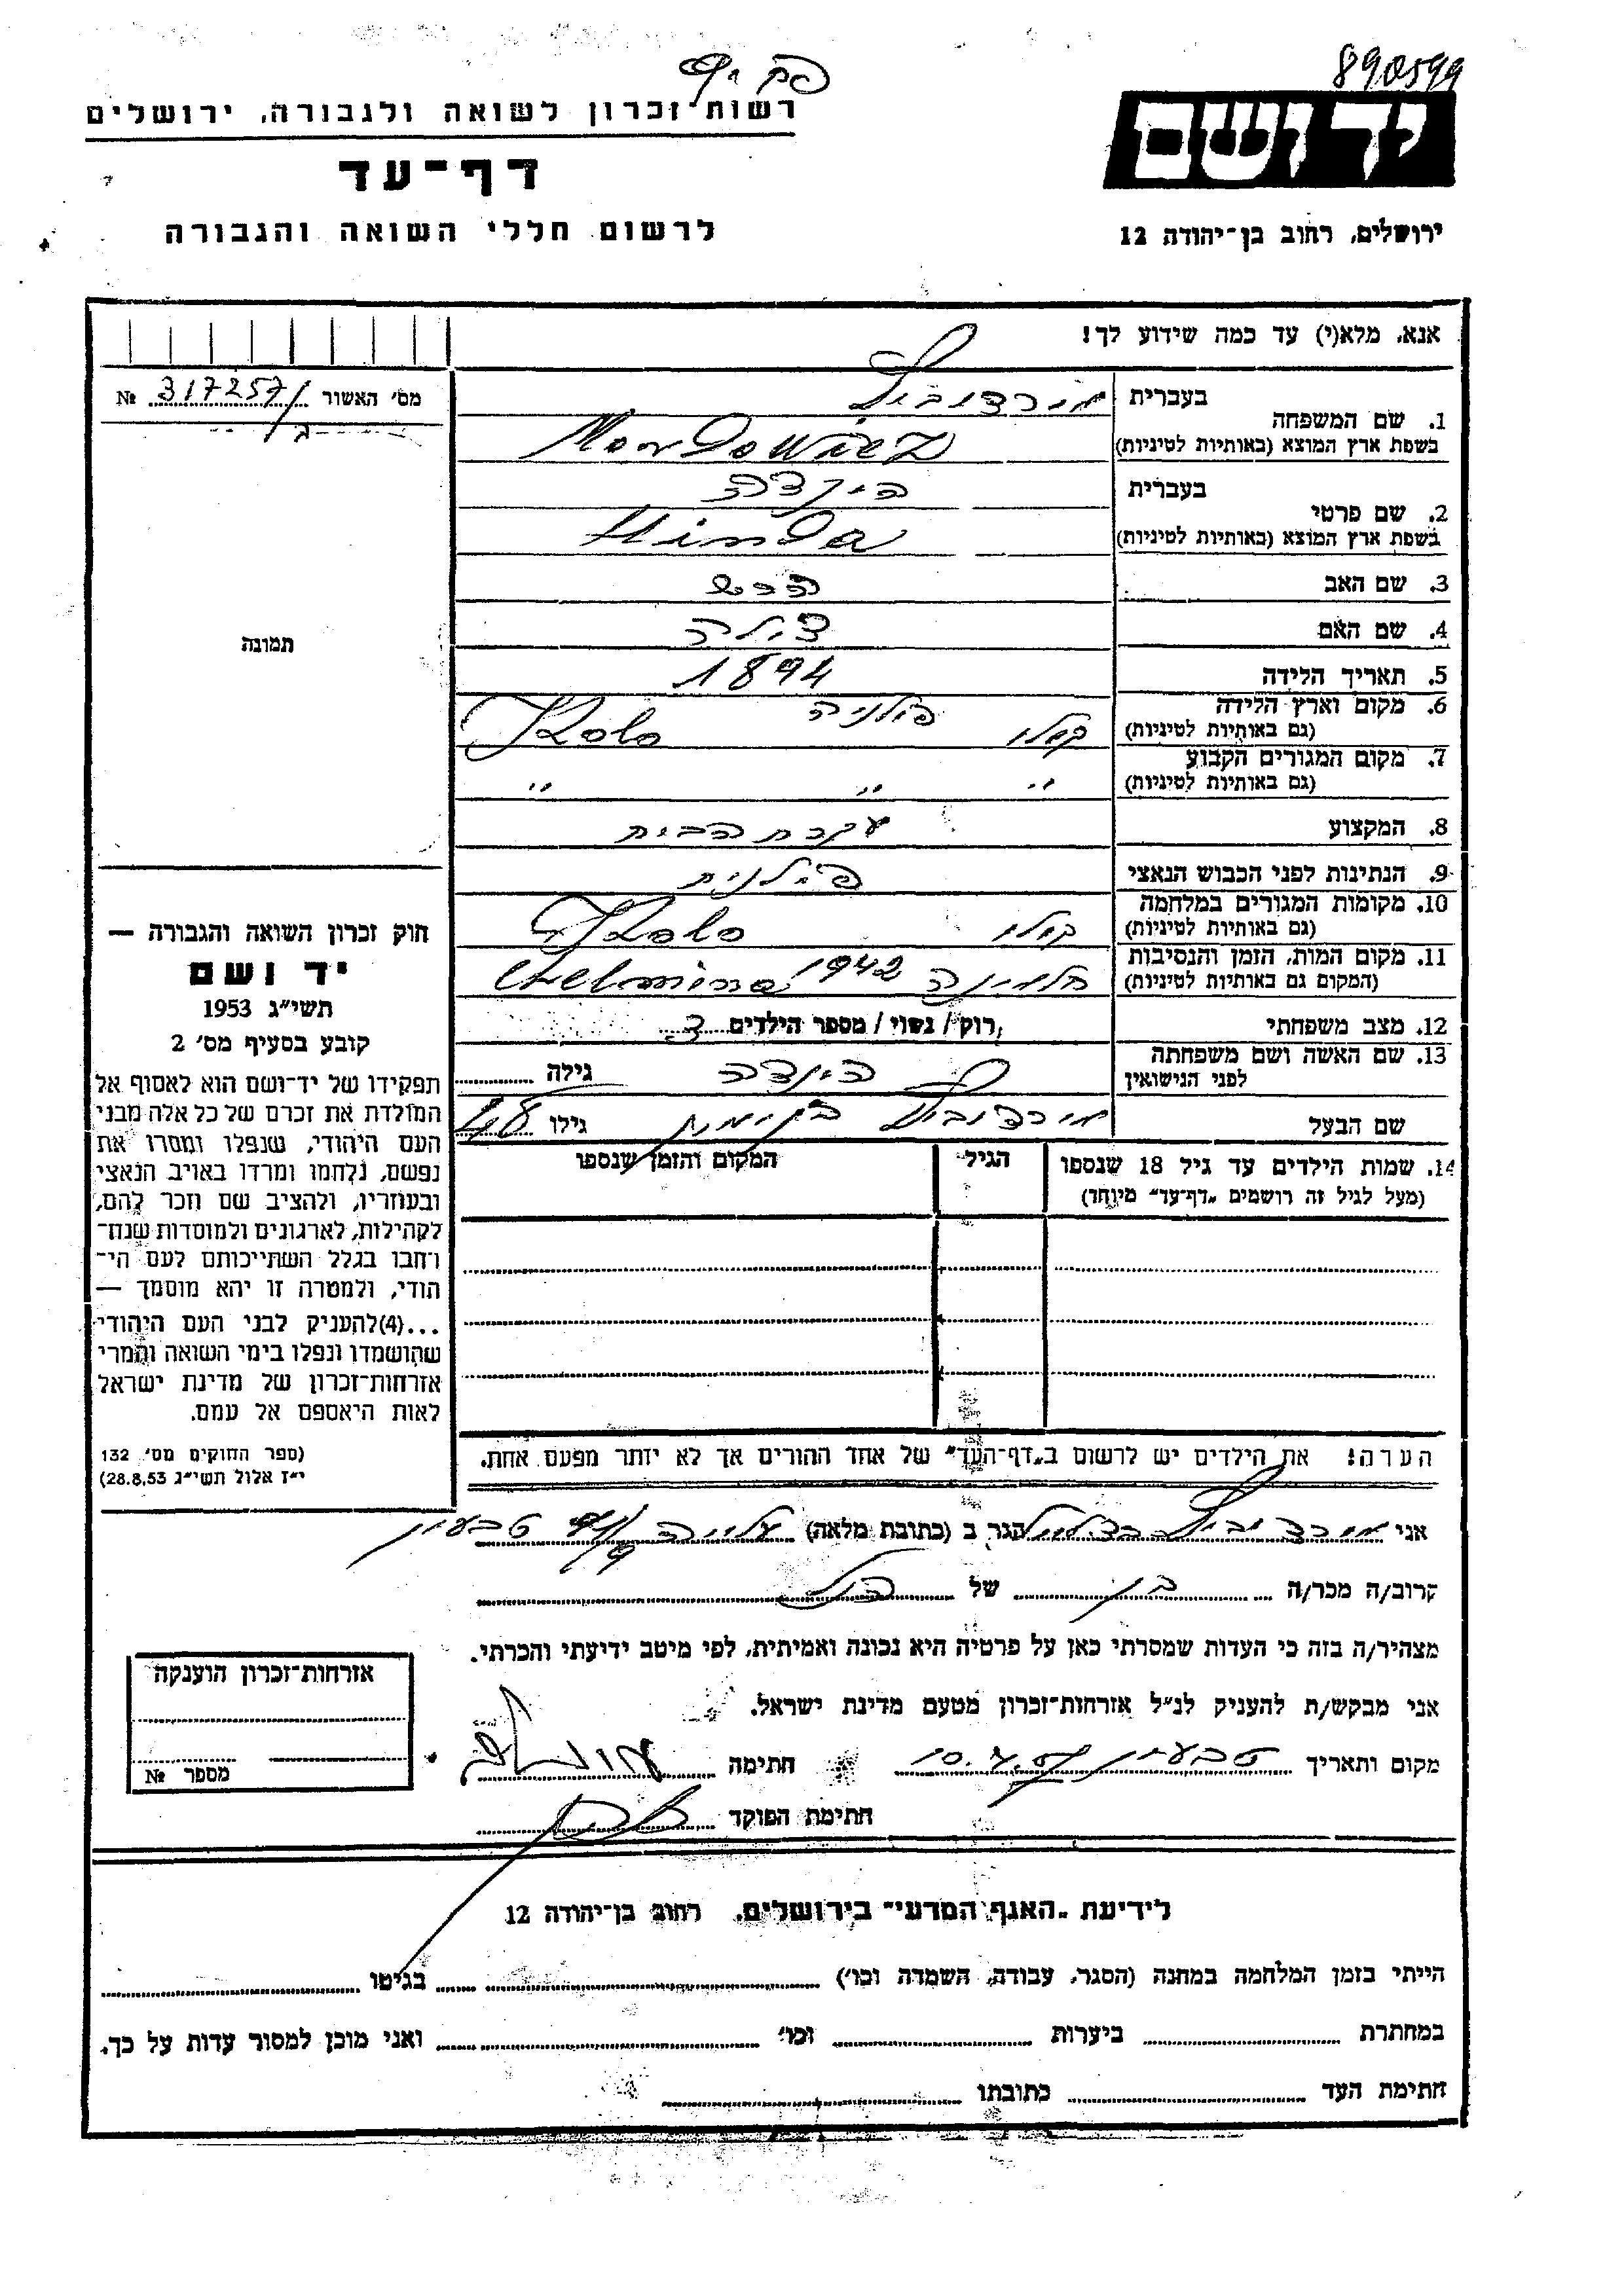 890599
רשות זכרון לשואה ולגבורה, ירושלים
יד ושם
דף-עד
לרשום חללי השואה והגבורה
ירושלים, רחוב בן-יהודה 12
אנא, מלא(י) עד כמה שידוע לך!
מס' האשור № 317257/
בעברית
1. שם המשפחה
בשפת ארץ המוצא (באותיות לטיניות) Mordowicz
בעברית הינדה
2. שם פרטי
בשפת ארץ המוצא (באותיות לטיניות) Hinda
3. שם האב הרש
4. שם האם צילה
5. תאריך הלידה 1894
6. מקום וארץ הלידה קולו פולניה Kolo
(גם באותיות לטיניות)
7. מקום המגורים הקבוע
(גם באותיות לטיניות) " " "
8. המקצוע עקרת הבית
9. הנתינות לפני הכבוש הנאצי פולנית
10. מקומות המגורים במלחמה קולו Kolo
(גם באותיות לטיניות)
11. מקום המות, הזמן והנסיבות חלמינה 1942 Chelmina
(המקום גם באותיות לטיניות)
12. מצב משפחתי רוק/ נשוי/ מספר הילדים 3
13. שם האשה ושם משפחתה הינדה גילה
לפני הנישואין
שם הבעל גילו 48
תמונה
14. שמות הילדים עד גיל 18 שנספו הגיל המקום והזמן שנספו
(מעל לגיל זה רושמים "דף-עד" מיוחד)
חוק זכרון השואה והגבורה —
יד ושם
תשי"ג 1953
קובע בסעיף מס' 2
תפקידו של יד-ושם הוא לאסוף אל
המולדת את זכרם של כל אלה מבני
העם היהודי, שנפלו ומסרו את
נפשם, נלחמו ומרדו באויב הנאצי
ובעוזריו, ולהציב שם וזכר להם,
לקהילות, לארגונים ולמוסדות שנח-
רבו בגלל השתייכותם לעם הי-
הודי, ולמטרה זו יהא מוסמך —
...(4)להעניק לבני העם היהודי
שהושמדו ונפלו בימי השואה והמרי
אזרחות-זכרון של מדינת ישראל
לאות היאספם אל עמם.
(ספר החוקים מס' 132
י"ז אלול תשי"ג 28.8.53)
הערה! את הילדים יש לרשום ב"דף-העד" של אחד ההורים אך לא יותר מפעם אחת.
אני הגר ב (כתובת מלאה) טבעון
קרוב/ה מכר/ה בן של
מצהיר/ה בזה כי העדות שמסרתי כאן על פרטיה היא נכונה ואמיתית, לפי מיטב ידיעתי והכרתי.
אני מבקש/ת להעניק לנ"ל אזרחות-זכרון מטעם מדינת ישראל.
מקום ותאריך טבעון חתימה
חתימת הפוקד
אזרחות-זכרון הוענקה
מספר №
לידיעת "האגף המדעי" בירושלים, רחוב בן-יהודה 12
הייתי בזמן המלחמה במחנה (הסגר, עבודה, השמדה וכו') בגיטו
במחתרת ביערות וכו' ואני מוכן למסור עדות על כך.
חתימת העד כתובתו